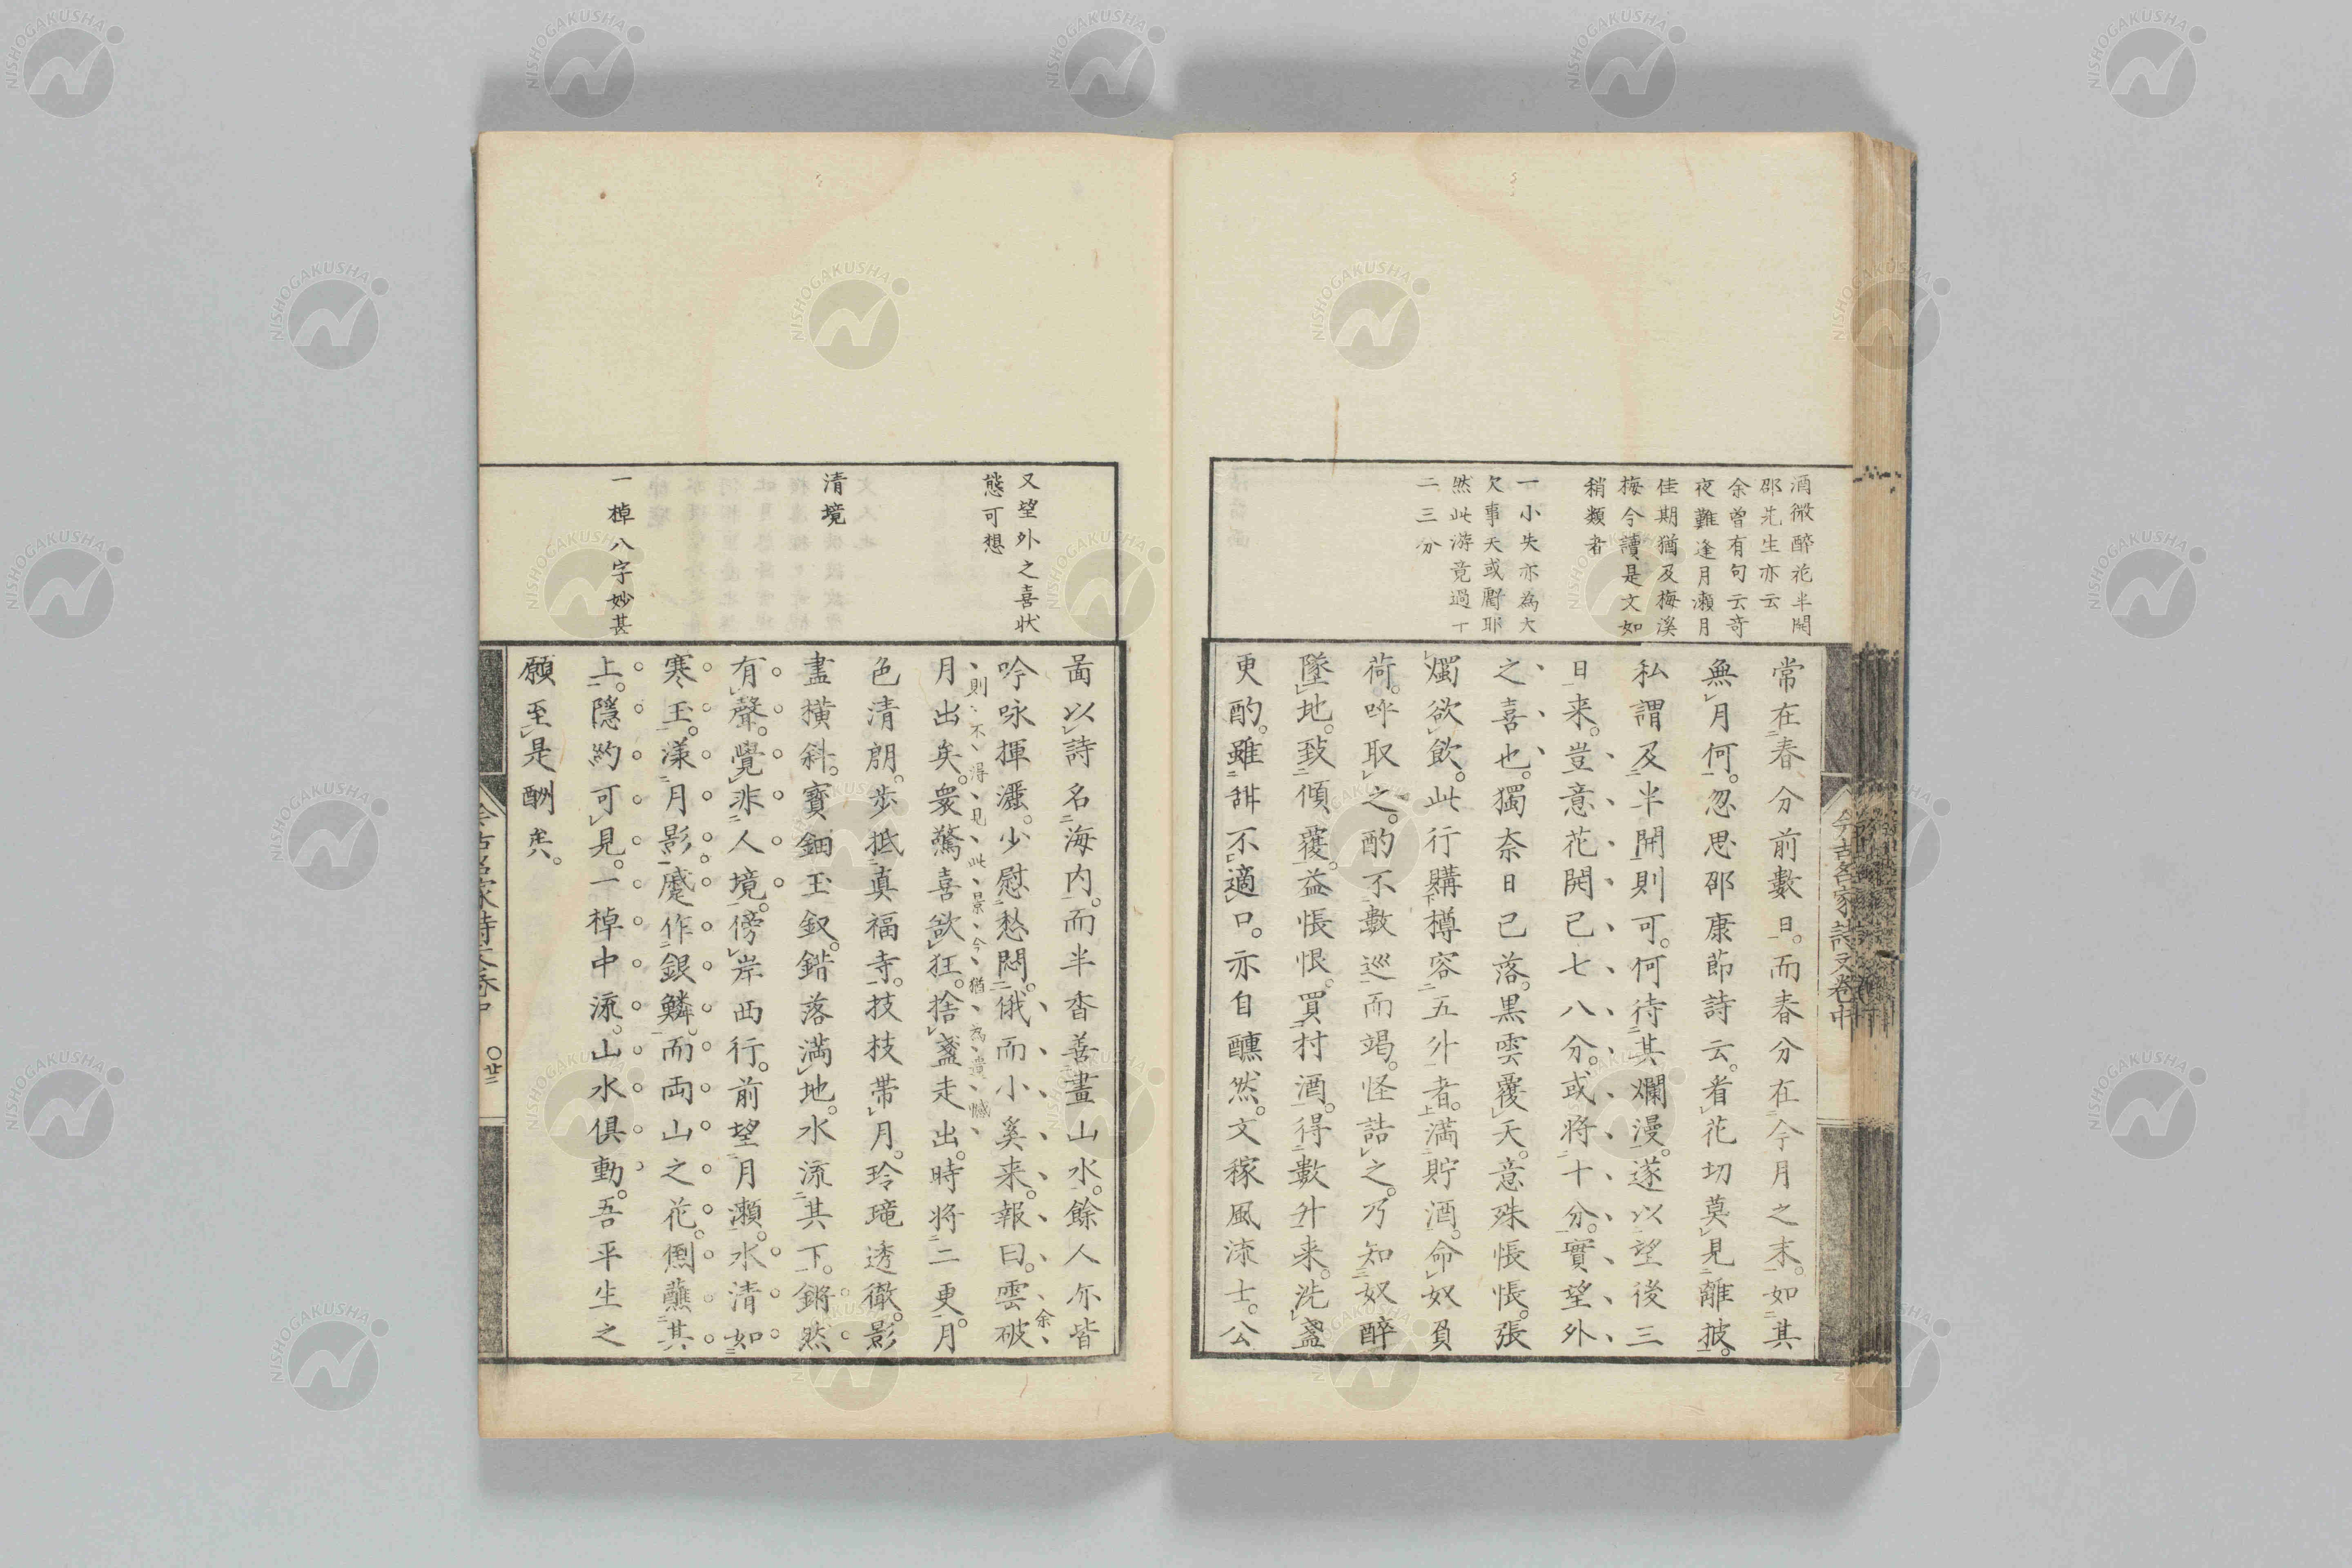 酒微醉花半開
邵先生亦云
余曾有句云奇
夜難逢月瀬月
佳期猶及梅溪
梅今讀是文如
稍類者
一小失亦為大
欠事天或厭耶
然此游竟過十
二三分
常在春分前數日。而春分在今月之末。如其
無月何。忽思邵康節詩云。看花切莫見離披。
私謂及半開則可。何待其爛漫。遂以望後三
日来。豈意花開已七八分。或将十分。實望外
之喜也。獨奈日已落。黒雲覆天。意殊悵悵。張
燭欲飲。此行購樽容五升者。満貯酒。命奴負
荷。呼取之。酌不數巡而竭。怪詰之。乃知奴醉
墜地。致傾覆。益悵恨。買村酒。得數升来。洗盞
更酌。雖甜不適口。亦自醺然。文稼風流士。公
今古名家詩文卷中
又望外之喜狀
態可想
清境
一棹八字妙甚
啚以詩名海内。而半香善畫山水。餘人亦皆
吟咏揮灑。少慰愁悶。俄而小奚来。報曰。雲破
余
月出矣。衆驚喜欲狂。捨盞走出。時将二更。月
則不得見此景今猶為遺憾
色清朗。歩抵真福寺。技枝帯月。玲瓏透徹。影
盡横斜。寶鈿玉釵。錯落満地。水流其下。鏘然
有聲。覺非人境。傍岸西行。前望月瀬。水清如
寒玉。漾月影。蹙作銀鱗。而両山之花。倒蘸其
上。隠約可見。一棹中流。山水俱動。吾平生之
願至是酬矣。
今古名家詩文卷中
〇廿二
NISHOGAKUSHA